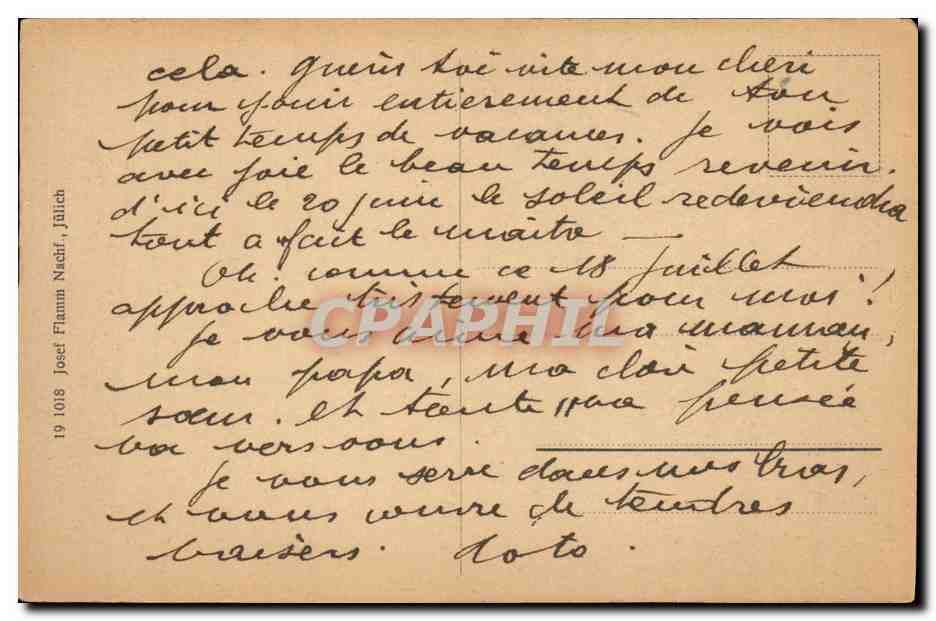 cela. Guéris toi vite mon chéri
pour jouir entièrement de ton
petit temps de vacances. Je vois
avec joie le beau temps revenir.
d'ici le 20 juin le soleil redeviendra
tout a fait le maitre —
Oh! comme ce 18 juillet
approche tristement pour moi!
Je vous aime ma maman,
mon papa, ma chère petite
sœur. Et toute ma pensée
va vers vous.
Je vous serre dans mes bras,
et vous couvre de tendres
baisers. Toto.
19 1018 Josef Flamm Nachf., Jülich
CPAPHIL